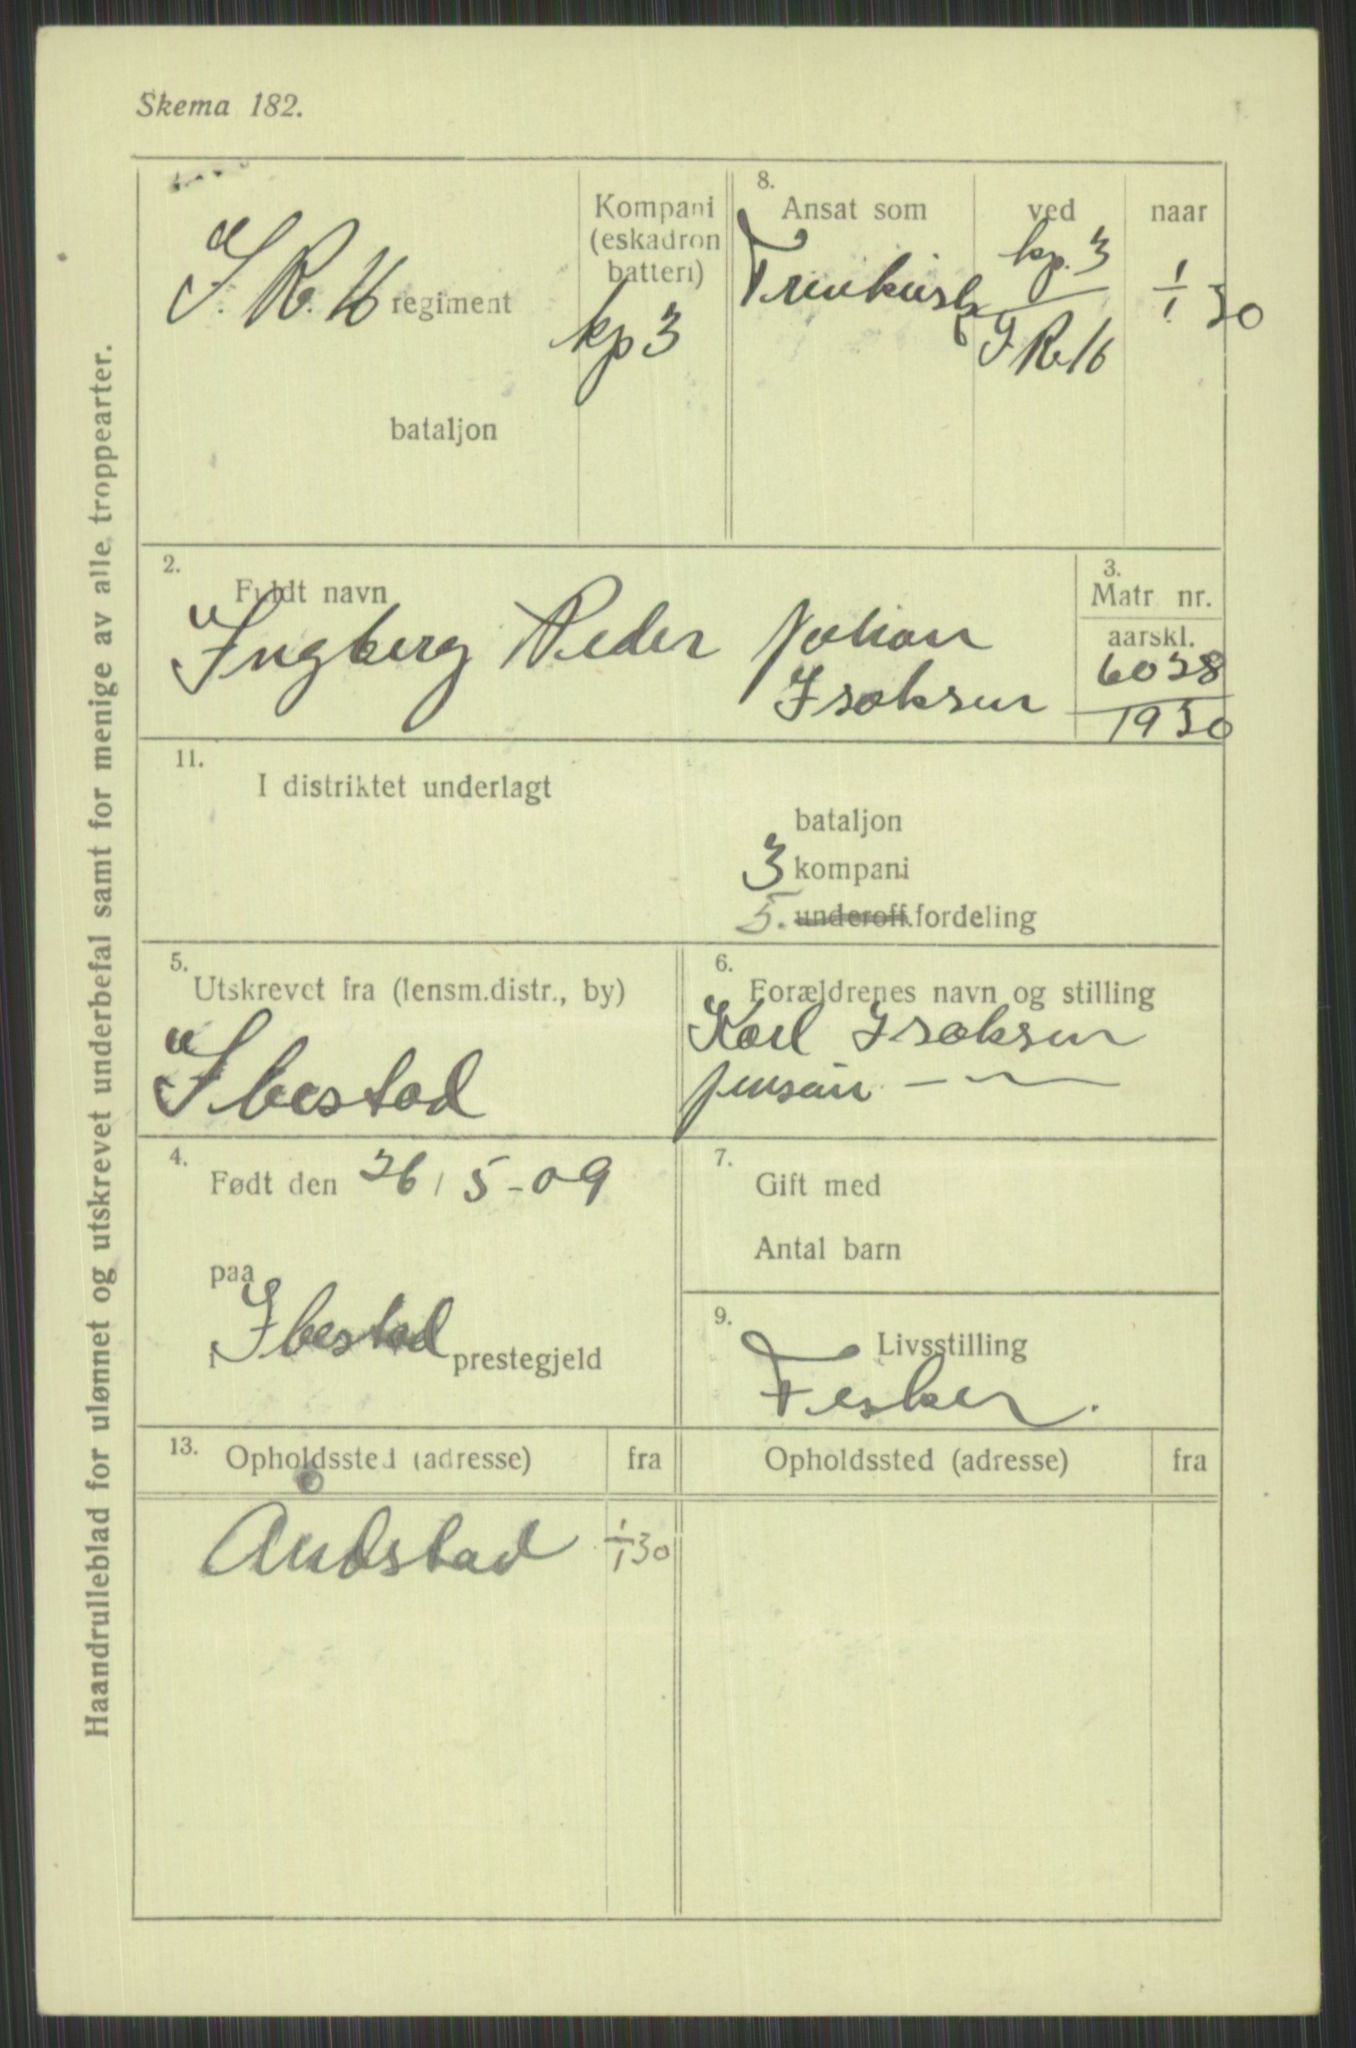 Skema 182.
Haandrulleblad for ulønnet og utskrevet underbefal samt for menige av alle troppearter.
I. R. 16 regiment
bataljon
Kompani
(eskadron
batteri)
kp 3
8.
Ansat som
ved
kp. 3
I R. 16
naar
1/1 30
2.
Fuldt navn
Ingberg Peder Johan
Isaksen
3.
Matr nr.
aarskl.
6028
1930
11.
I distriktet underlagt
bataljon
3 kompani
5. underoff.fordeling
5.
Utskrevet fra (lensm.distr., by)
Ibestad
6.
Forældrenes navn og stilling
Karl Isaksen
4.
Født den 26/5-09
paa
i Ibestad prestegjeld
7.
Gift med
Antal barn
9.
Livsstilling
Fisker.
13.
Opholdssted (adresse)
fra
Opholdssted (adresse)
fra
Åndstad 1/1 30